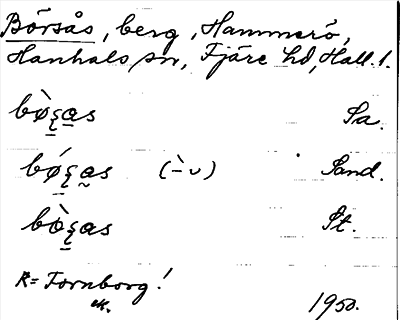 Börsås, berg, Hammerö,
Hanhals sn, Fjäre hd, Hall. l.
bø̀ʂas Sa.
bǿʂas (–̀ ᴗ) Sand.
bø̀ʂas St.
R = Fornborg!
1950.